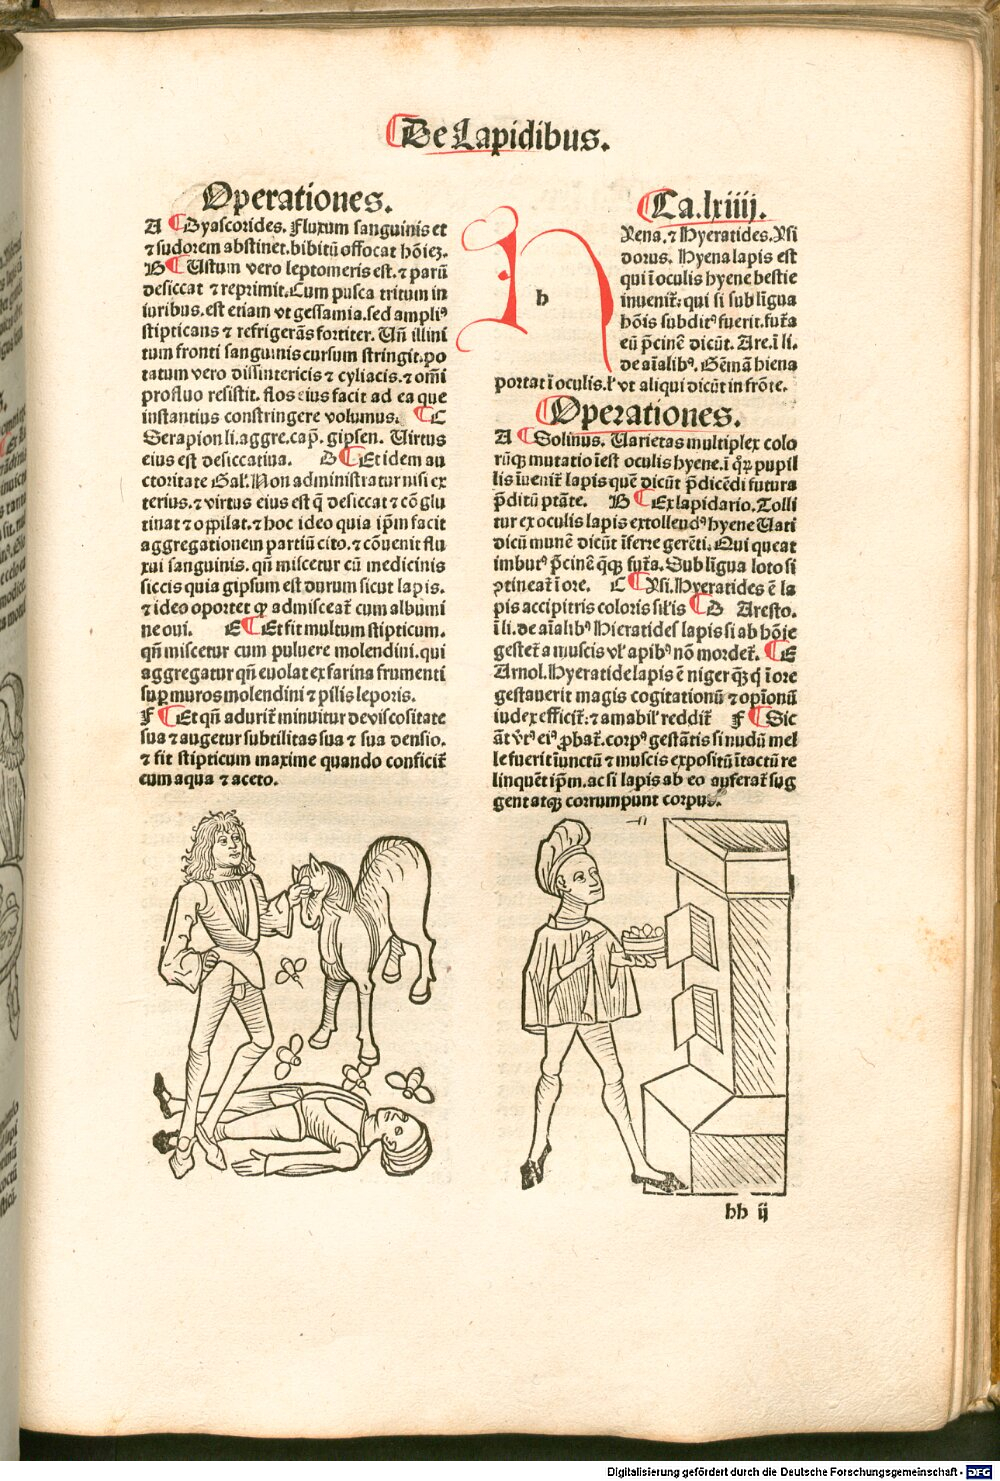 De Lapidibus.
Operationes.
A Dyascorides. Fluxum sanguinis et
⁊ sudorem abstinet. bibitū offocat hōiez.
B Ustum vero leptomeris est. ⁊ parū
desiccat ⁊ reprimit. Cum pusca tritum in
iuribus. est etiam vt gessamia. sed ampliꝰ
stipticans ⁊ refrigerās fortiter. Uñ illini
tum fronti sanguinis cursum stringit. po
tatum vero dissintericis ⁊ cyliacis. ⁊ om̄i
profluo resistit. flos eius facit ad ea que
instantius constringere volumus. C
Serapion li. aggre. cap. gipsen. Uirtus
eius est desiccatiua. D Et idem au
ctoritate Gal. Non administratur nisi ex
terius. ⁊ virtus eius est q̄ desiccat ⁊ cōglu
tinat ⁊ oppilat. ⁊ hoc ideo quia ip̄m facit
aggregationem partiū cito. ⁊ cōuenit flu
xui sanguinis. qn̄ miscetur cū medicinis
siccis quia gipsum est durum sicut lapis.
⁊ ideo oportet ꝙ admisceat̄ cum albumi
ne oui. E Et fit multum stipticum.
qn̄ miscetur cum puluere molendini. qui
aggregatur qn̄ euolat ex farina frumenti
suꝑ muros molendini ⁊ pilis leporis.
F Et qn̄ adurit̄ minuitur de viscositate
sua ⁊ augetur subtilitas sua ⁊ sua densio.
⁊ fit stipticum maxime quando conficit̄
cum aqua ⁊ aceto.
Ca. lxiiij.
h
Yena. ⁊ Hyeratides. Ysi
dorus. Hyena lapis est
qui ī oculis hyene bestie
inuenit̄: qui si sub līgua
hōis subditꝰ fuerit. fut̄a
eū p̄cinē dicūt. Are. ī li.
de aīalibꝰ. Gēmā hiena
portat ī oculis. l' vt aliqui dicūt in frōte.
Operationes.
A Solinus. Uarietas multiplex colo
rūqꝫ mutatio īest oculis hyene. ī qͦꝝ pupil
lis īuenit̄ lapis quē dicūt p̄dicēdi futura
p̄ditū ptāte. B Ex lapidario. Tolli
tur ex oculis lapis extollendꝰ hyene Uati
dicū munē dicūt īferre gerēti. Qui queat
imbutꝰ p̄cinē qͥqꝫ fut̄a. Sub līgua loto si
ꝯtineat̄ ī ore. C Ysi. Hyeratides ē la
pis accipitris coloris sil'is D Aresto.
ī li. de aīalibꝰ Hieratides lapis si ab hōie
gestet̄ a muscis vl' apibꝰ nō mordet̄. E
Arnol. Hyeratide lapis ē niger qꝫqꝫ qͥ ī ore
gestauerit magis cogitationū ⁊ opīonū
iudex efficit̄. ⁊ amabil' reddit̄ F Sic
āt v̄tꝰ eiꝰ ꝓbat̄. corpꝰ gestātis si nudū mel
le fuerit īunctū ⁊ muscis expositū ītactū re
linquēt ip̄m. ac si lapis ab eo auferat̄ sug
gent atqꝫ corrumpunt corpus.
hh ij
Digitalisierung gefördert durch die Deutsche Forschungsgemeinschaft - DFG